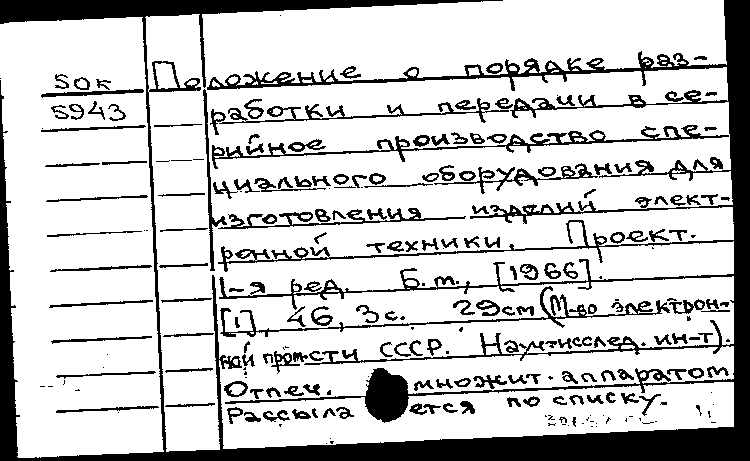 50к Положение о порядке раз-
5943 работки и передачи в се-
рийное производство спе-
циального оборудования для
изготовления изделий элект-
ронной техники. Проект.
1-я ред. Б.м., [1966].
[1], 46, 3с. 29см (М-во электрон-
ной пром-сти СССР. Науч-исслед. ин-т).
Отпеч. множит. аппаратом
Рассылается по списку.